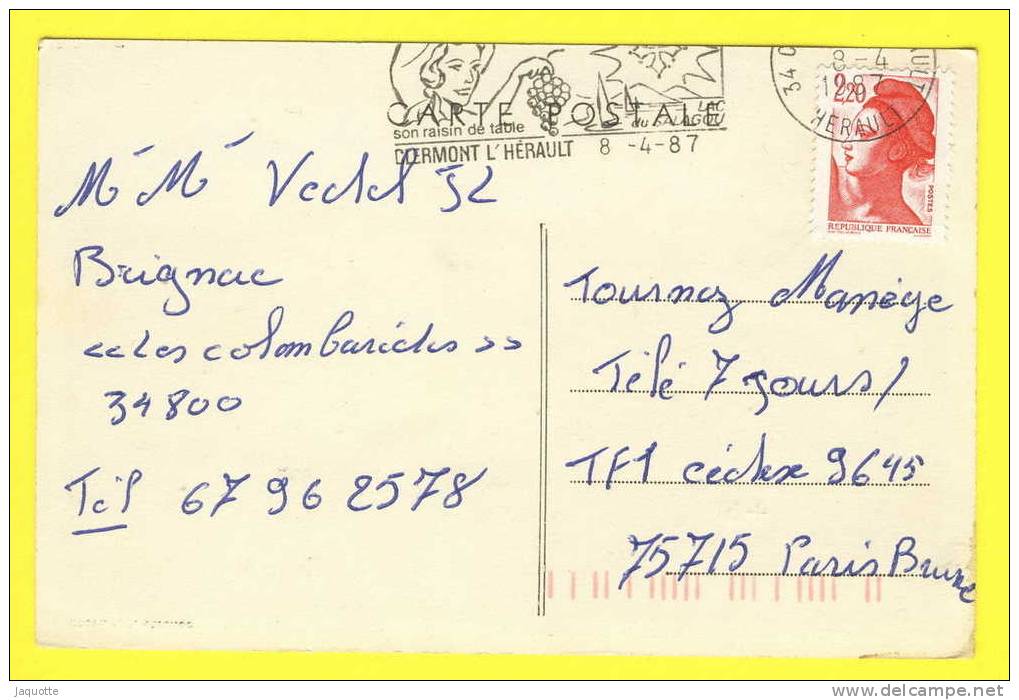 CARTE POSTALE
son raisin de table
LAC
DU SALAGOU
CLERMONT L'HÉRAULT 8 -4-87
34
8-4
1987
HERAULT
2,20
POSTES
REPUBLIQUE FRANÇAISE
M M
Brignac
<<Les colombariédes>>
34800
Tél 67 96 2578
Tournez Manège
Télé 7 Jours/
TF1 cédex 9645
75715 Paris Brune
Jaquotte
www.delcampe.net